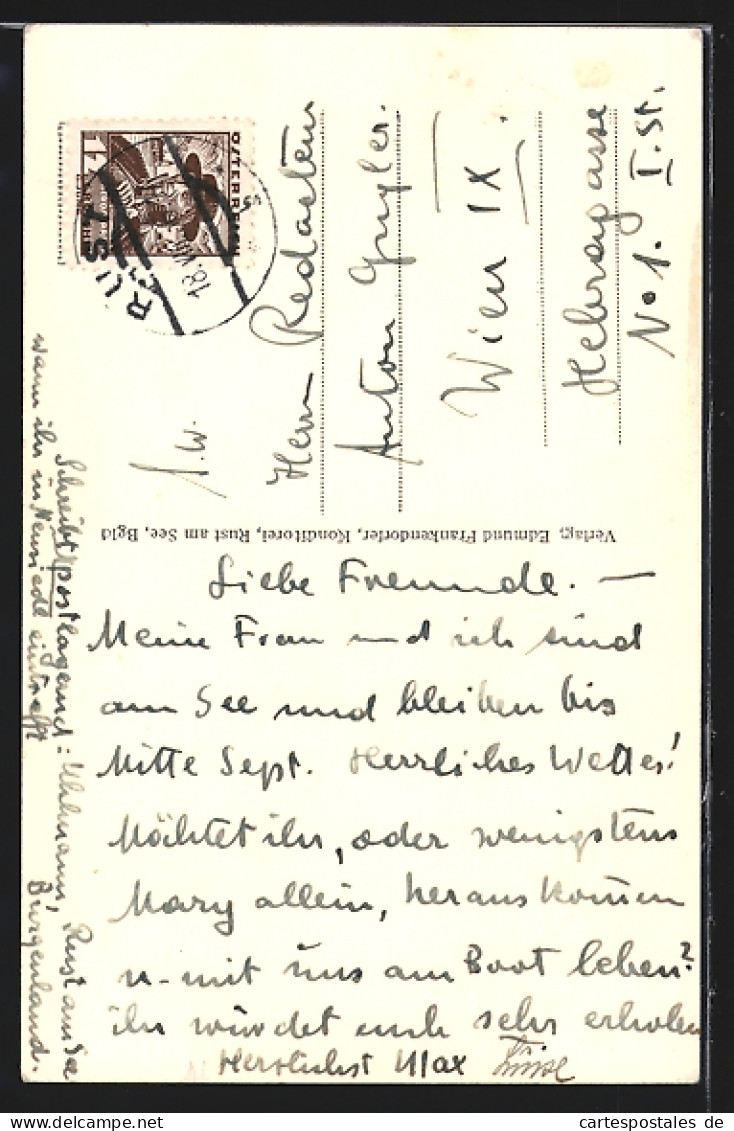 ÖSTERREICH
RUST
18.VI
1.W.
Herrn Redakteur
Anton
Wien IX.
No 1. I. St.
Verlag: Edmund Frankendorfer, Konditorei, Rust am See, Bgld
Liebe Freunde. —
Meine Frau und ich sind
am See und bleiben bis
Mitte Sept. Herrliches Wetter!
Möchtet ihr, oder wenigstens
Mary allein, heraus kommen
u. mit uns am Boot leben?
ihr würdet euch sehr erholen
Herzlichst Max
Schreibt postlagernd: Uhlmann, Rust am See
Burgenland.
wann ihr in Neusiedl eintrefft
cartespostales de
www.delcampe.net